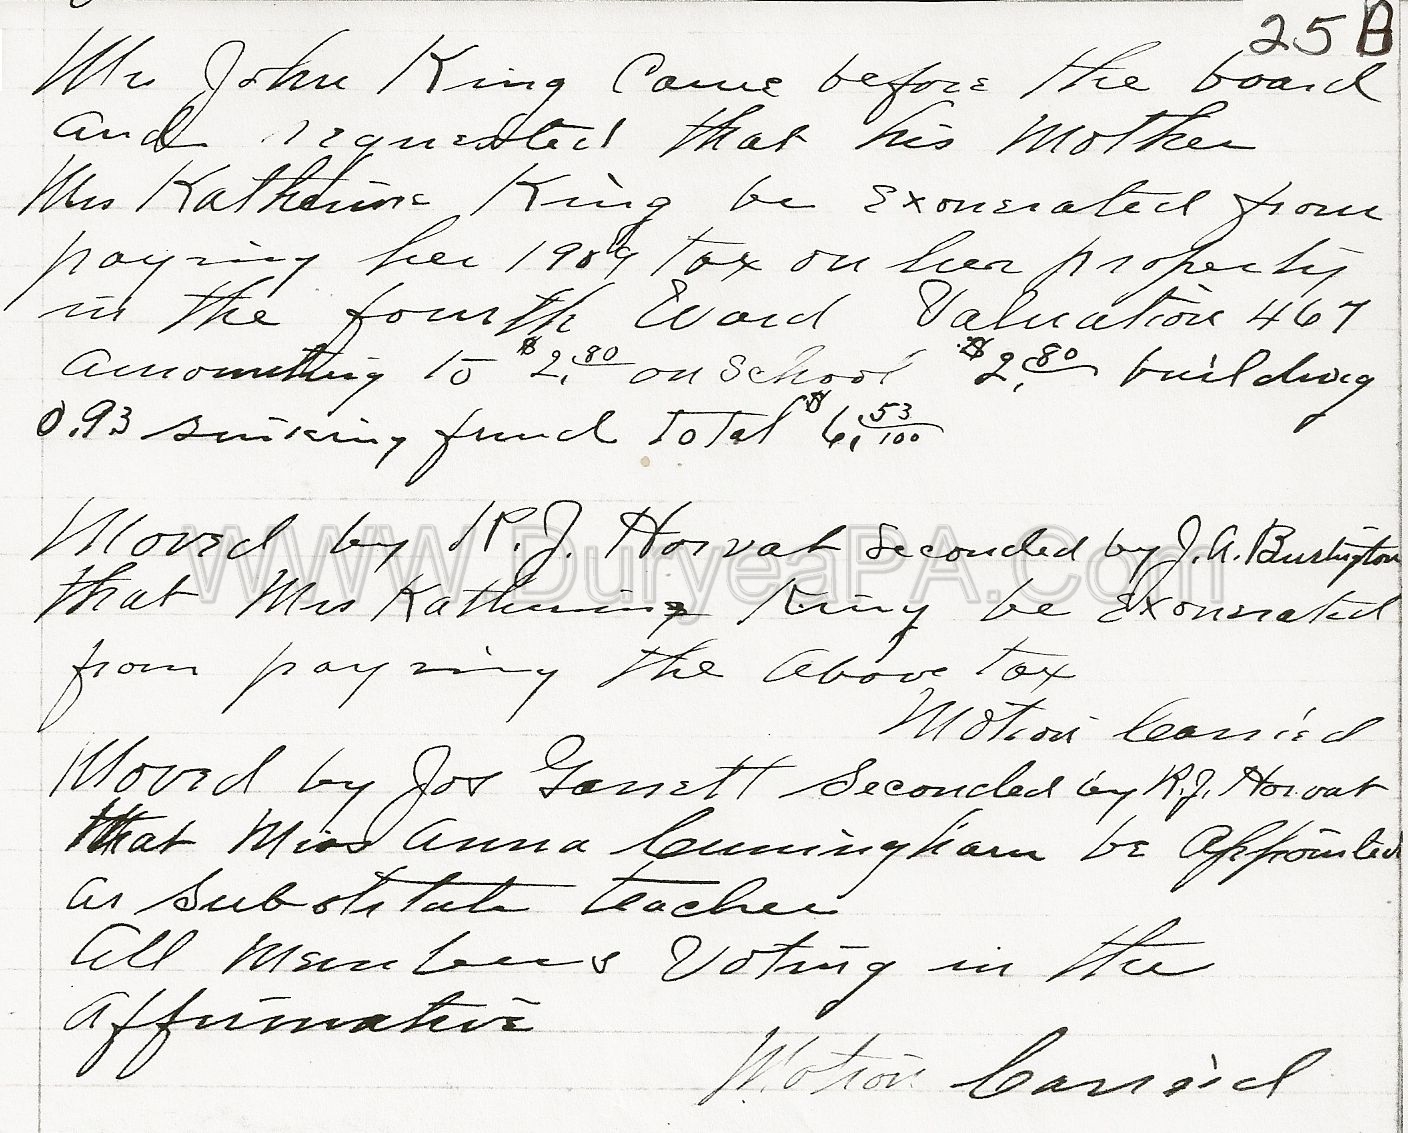 25 B
Mr John King Came before the board
and requested that his Mother
Mrs Katherine King be exonerated from
paying her 1909 tax on her property
in the fourth Ward Valuation 467
amounting to $2.80 on School $2.80 building
0.93 sinking fund total $6.53/100
Moved by R.J. Horvat seconded by J.A. Burlington
that Mrs Katherine King be exonerated
from paying the above tax
Motion Carried
Moved by Jos Garrett seconded by R.J. Horvat
that Miss Anna Cuningham be appointed
as substitute teacher
All Members Voting in the
affirmative
Motion Carried
WWW.DuryeaPA.Com